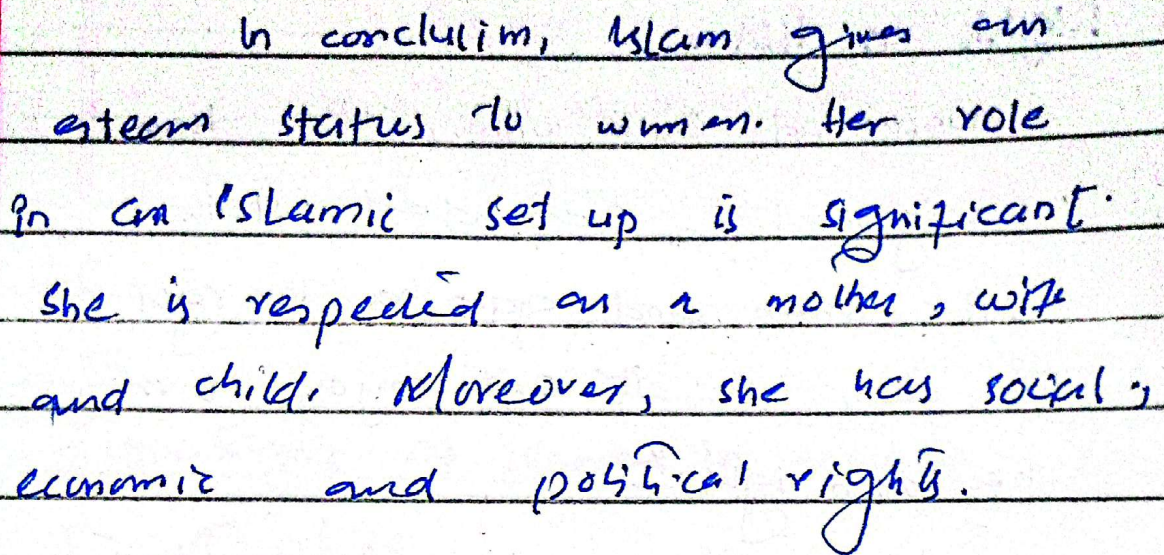 In conclusion, Islam gives an
esteem status to women. Her role
in an Islamic set up is significant.
She is respected as a mother, wife
and child. Moreover, she has social,
economic and political rights.